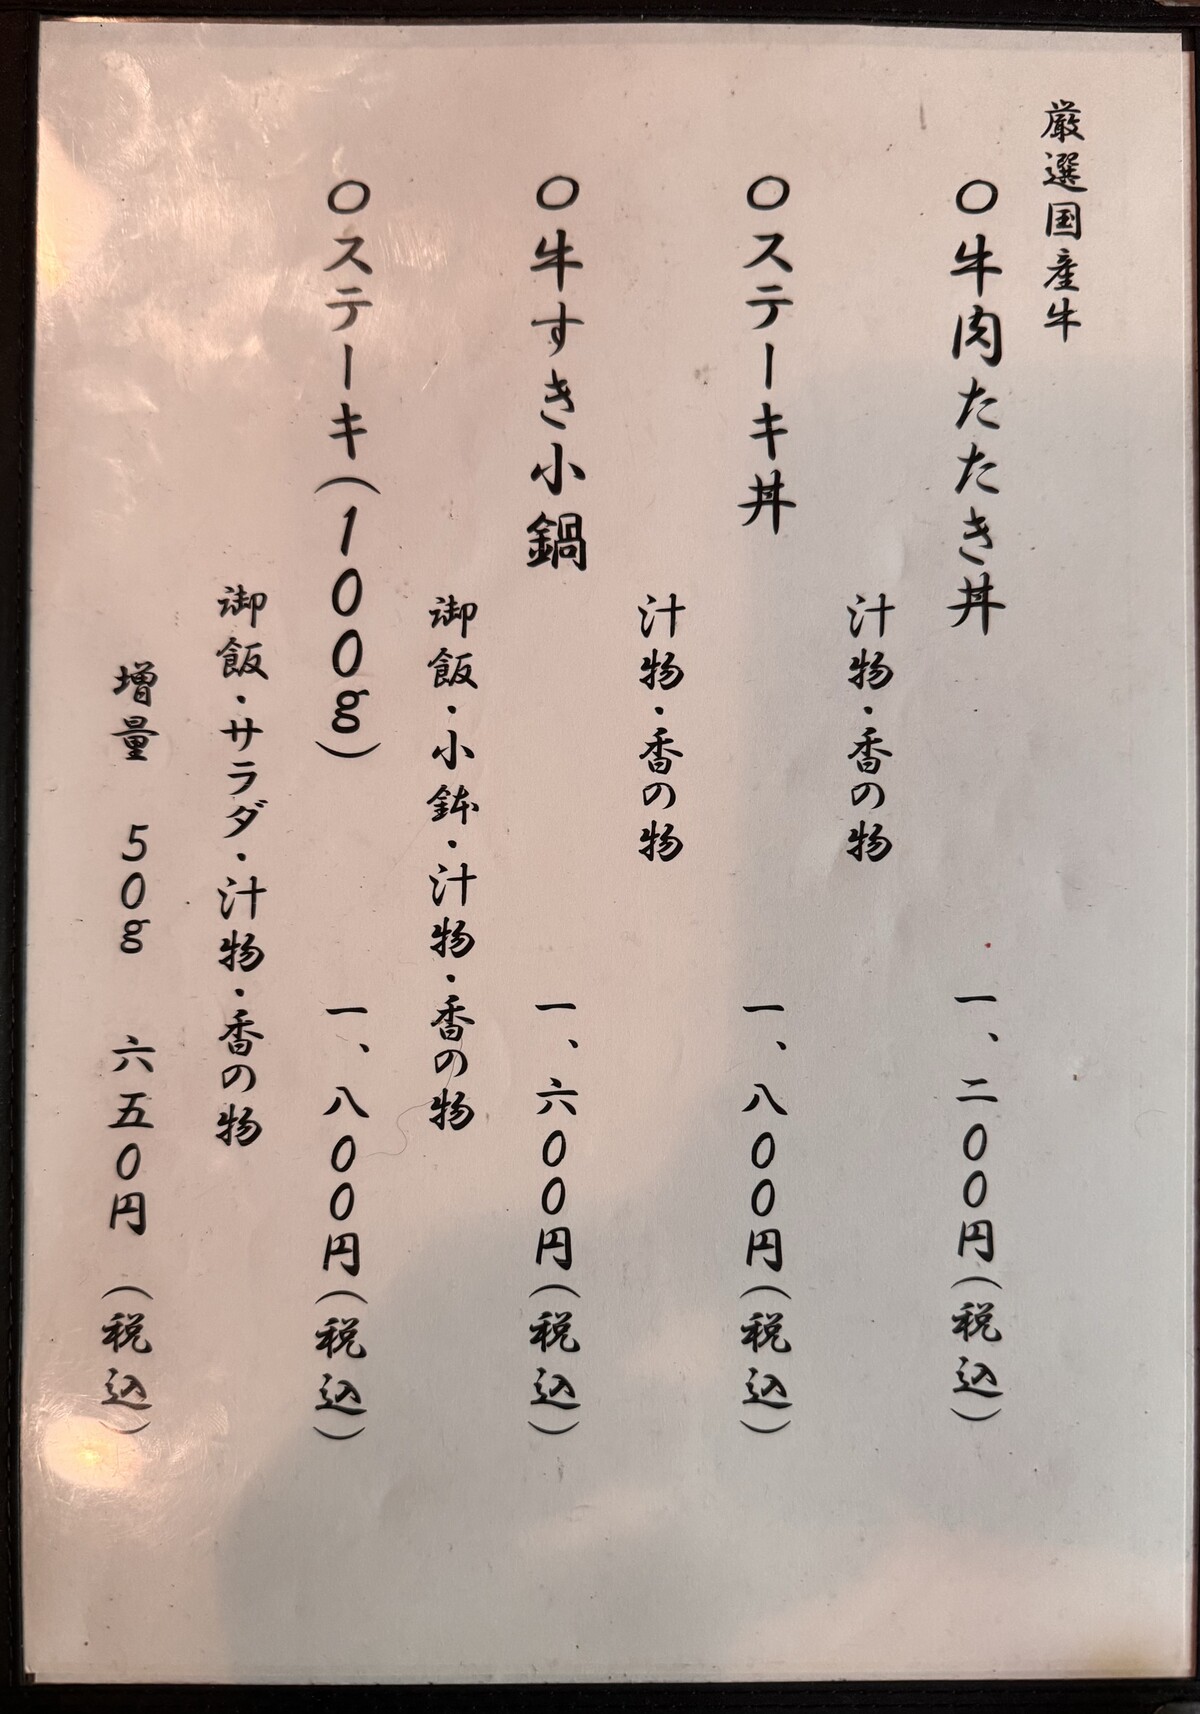 厳選国産牛
〇牛肉たたき丼 一、二〇〇円(税込)
汁物・香の物
〇ステーキ丼 一、八〇〇円(税込)
汁物・香の物
〇牛すき小鍋 一、六〇〇円(税込)
御飯・小鉢・汁物・香の物
〇ステーキ(100g) 一、八〇〇円(税込)
御飯・サラダ・汁物・香の物
増量 50g 六五〇円(税込)